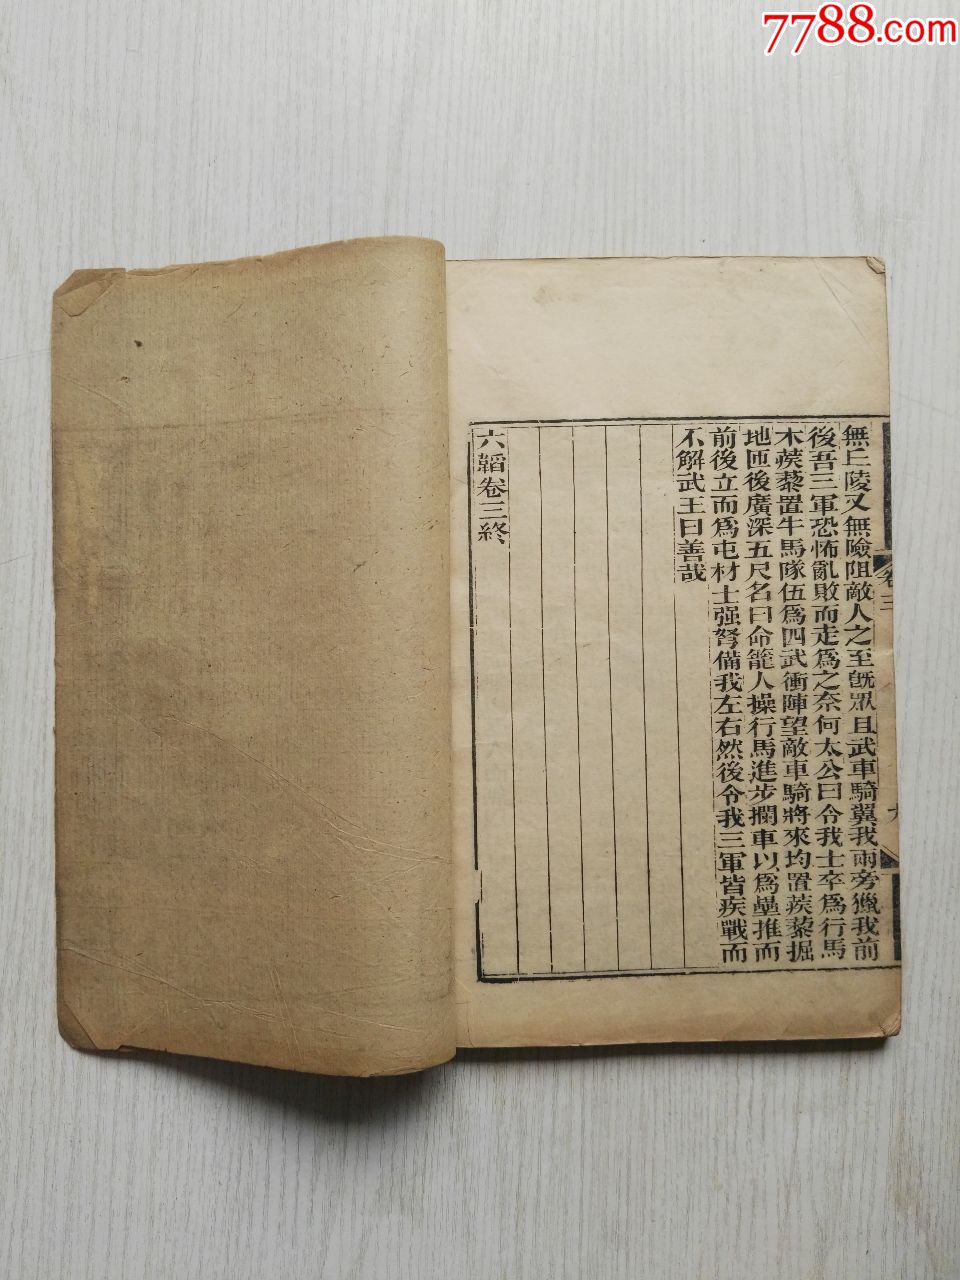 7788.com
無丘陵又無險阻敵人之至旣眾且武車騎翼我兩旁獵我前
後吾三軍恐怖亂敗而走爲之奈何太公曰令我士卒爲行馬
木蒺藜置牛馬隊伍爲四武衝陣望敵車騎將來均置蒺藜掘
地匝後廣深五尺名曰命籠人操行馬進步攔車以爲壘推而
前後立而爲屯材士强弩備我左右然後令我三軍皆疾戰而
不解武王曰善哉
六韜卷三終
卷三